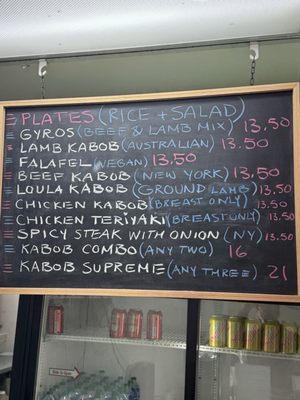 PLATES (RICE + SALAD)
GYROS (BEEF & LAMB MIX) 13.50
LAMB KABOB (AUSTRALIAN) 13.50
FALAFEL (VEGAN) 13.50
BEEF KABOB (NEW YORK) 13.50
LOULA KABOB (GROUND LAMB) 13.50
CHICKEN KABOB (BREAST ONLY) 13.50
CHICKEN TERIYAKI (BREAST ONLY) 13.50
SPICY STEAK WITH ONION (NY) 13.50
KABOB COMBO (ANY TWO) 16
KABOB SUPREME (ANY THREE) 21